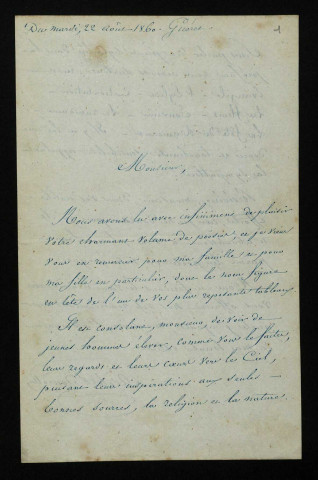 Du mardi, 22 août 1860
1
Monsieur,
Nous avons lu avec infiniment de plaisir
votre charmant volume de poésie, et je viens
vous en remercier pour ma famille et pour
ma fille en particulier, dont le nom figure
en tête de l'un de vos plus reposants tableaux.
Il est consolant, monsieur, de voir de
jeunes hommes élever, comme vous le faites,
leurs regards et leurs cœurs vers le Ciel,
puisant leurs inspirations aux seules
bonnes sources, la religion et la nature.